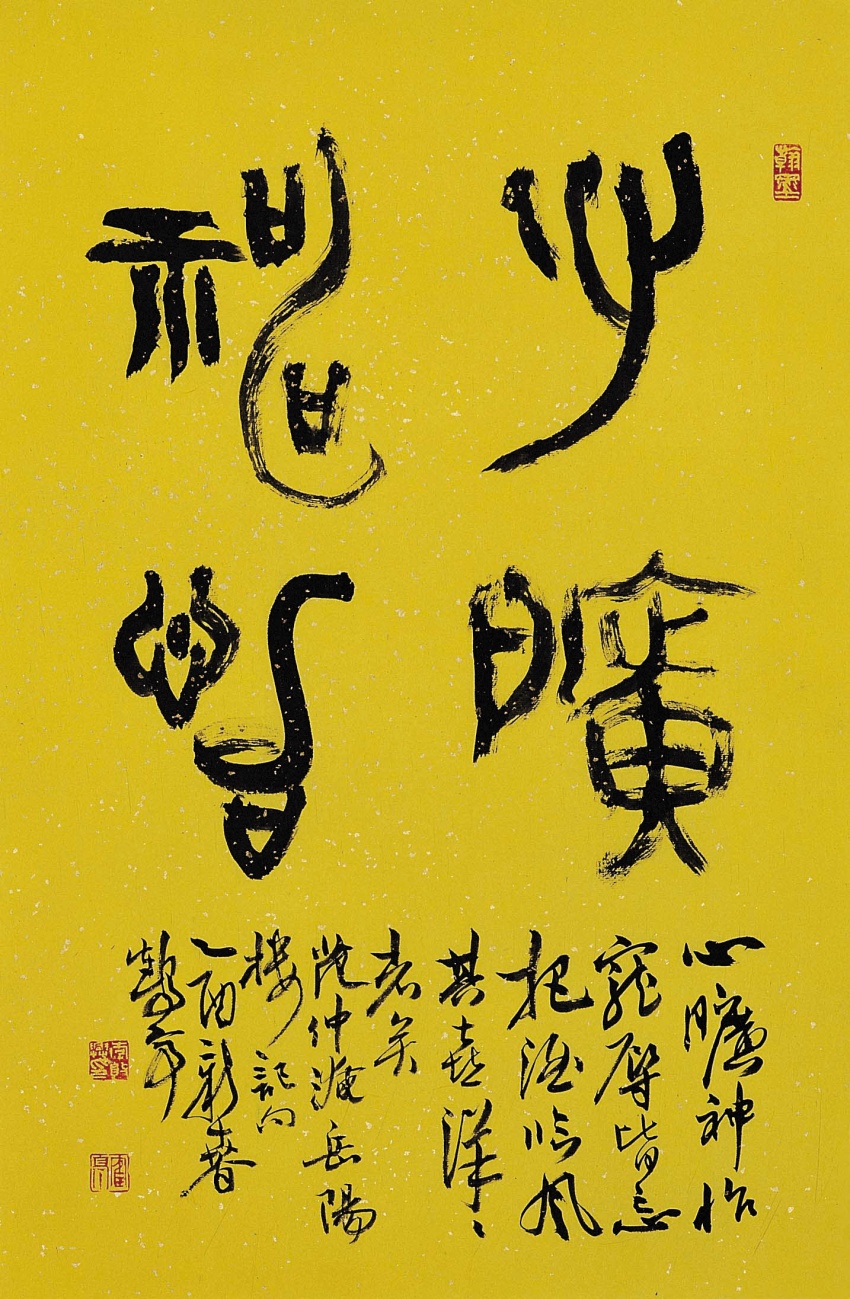 翰墨
心曠
神怡
心曠神怡
寵辱皆忘
把酒临风
其喜洋々
者矣
范仲淹岳陽
樓記句
乙酉新春
鶴